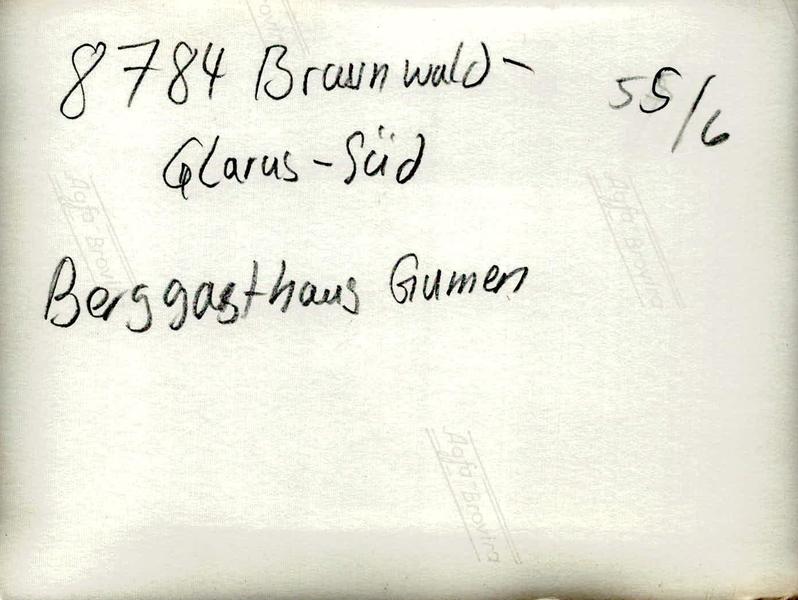 8784 Braunwald-
Glarus-Süd
55/6
Berggasthaus Gumen
Agfa Brovira
Agfa Brovira
Agfa Brovira